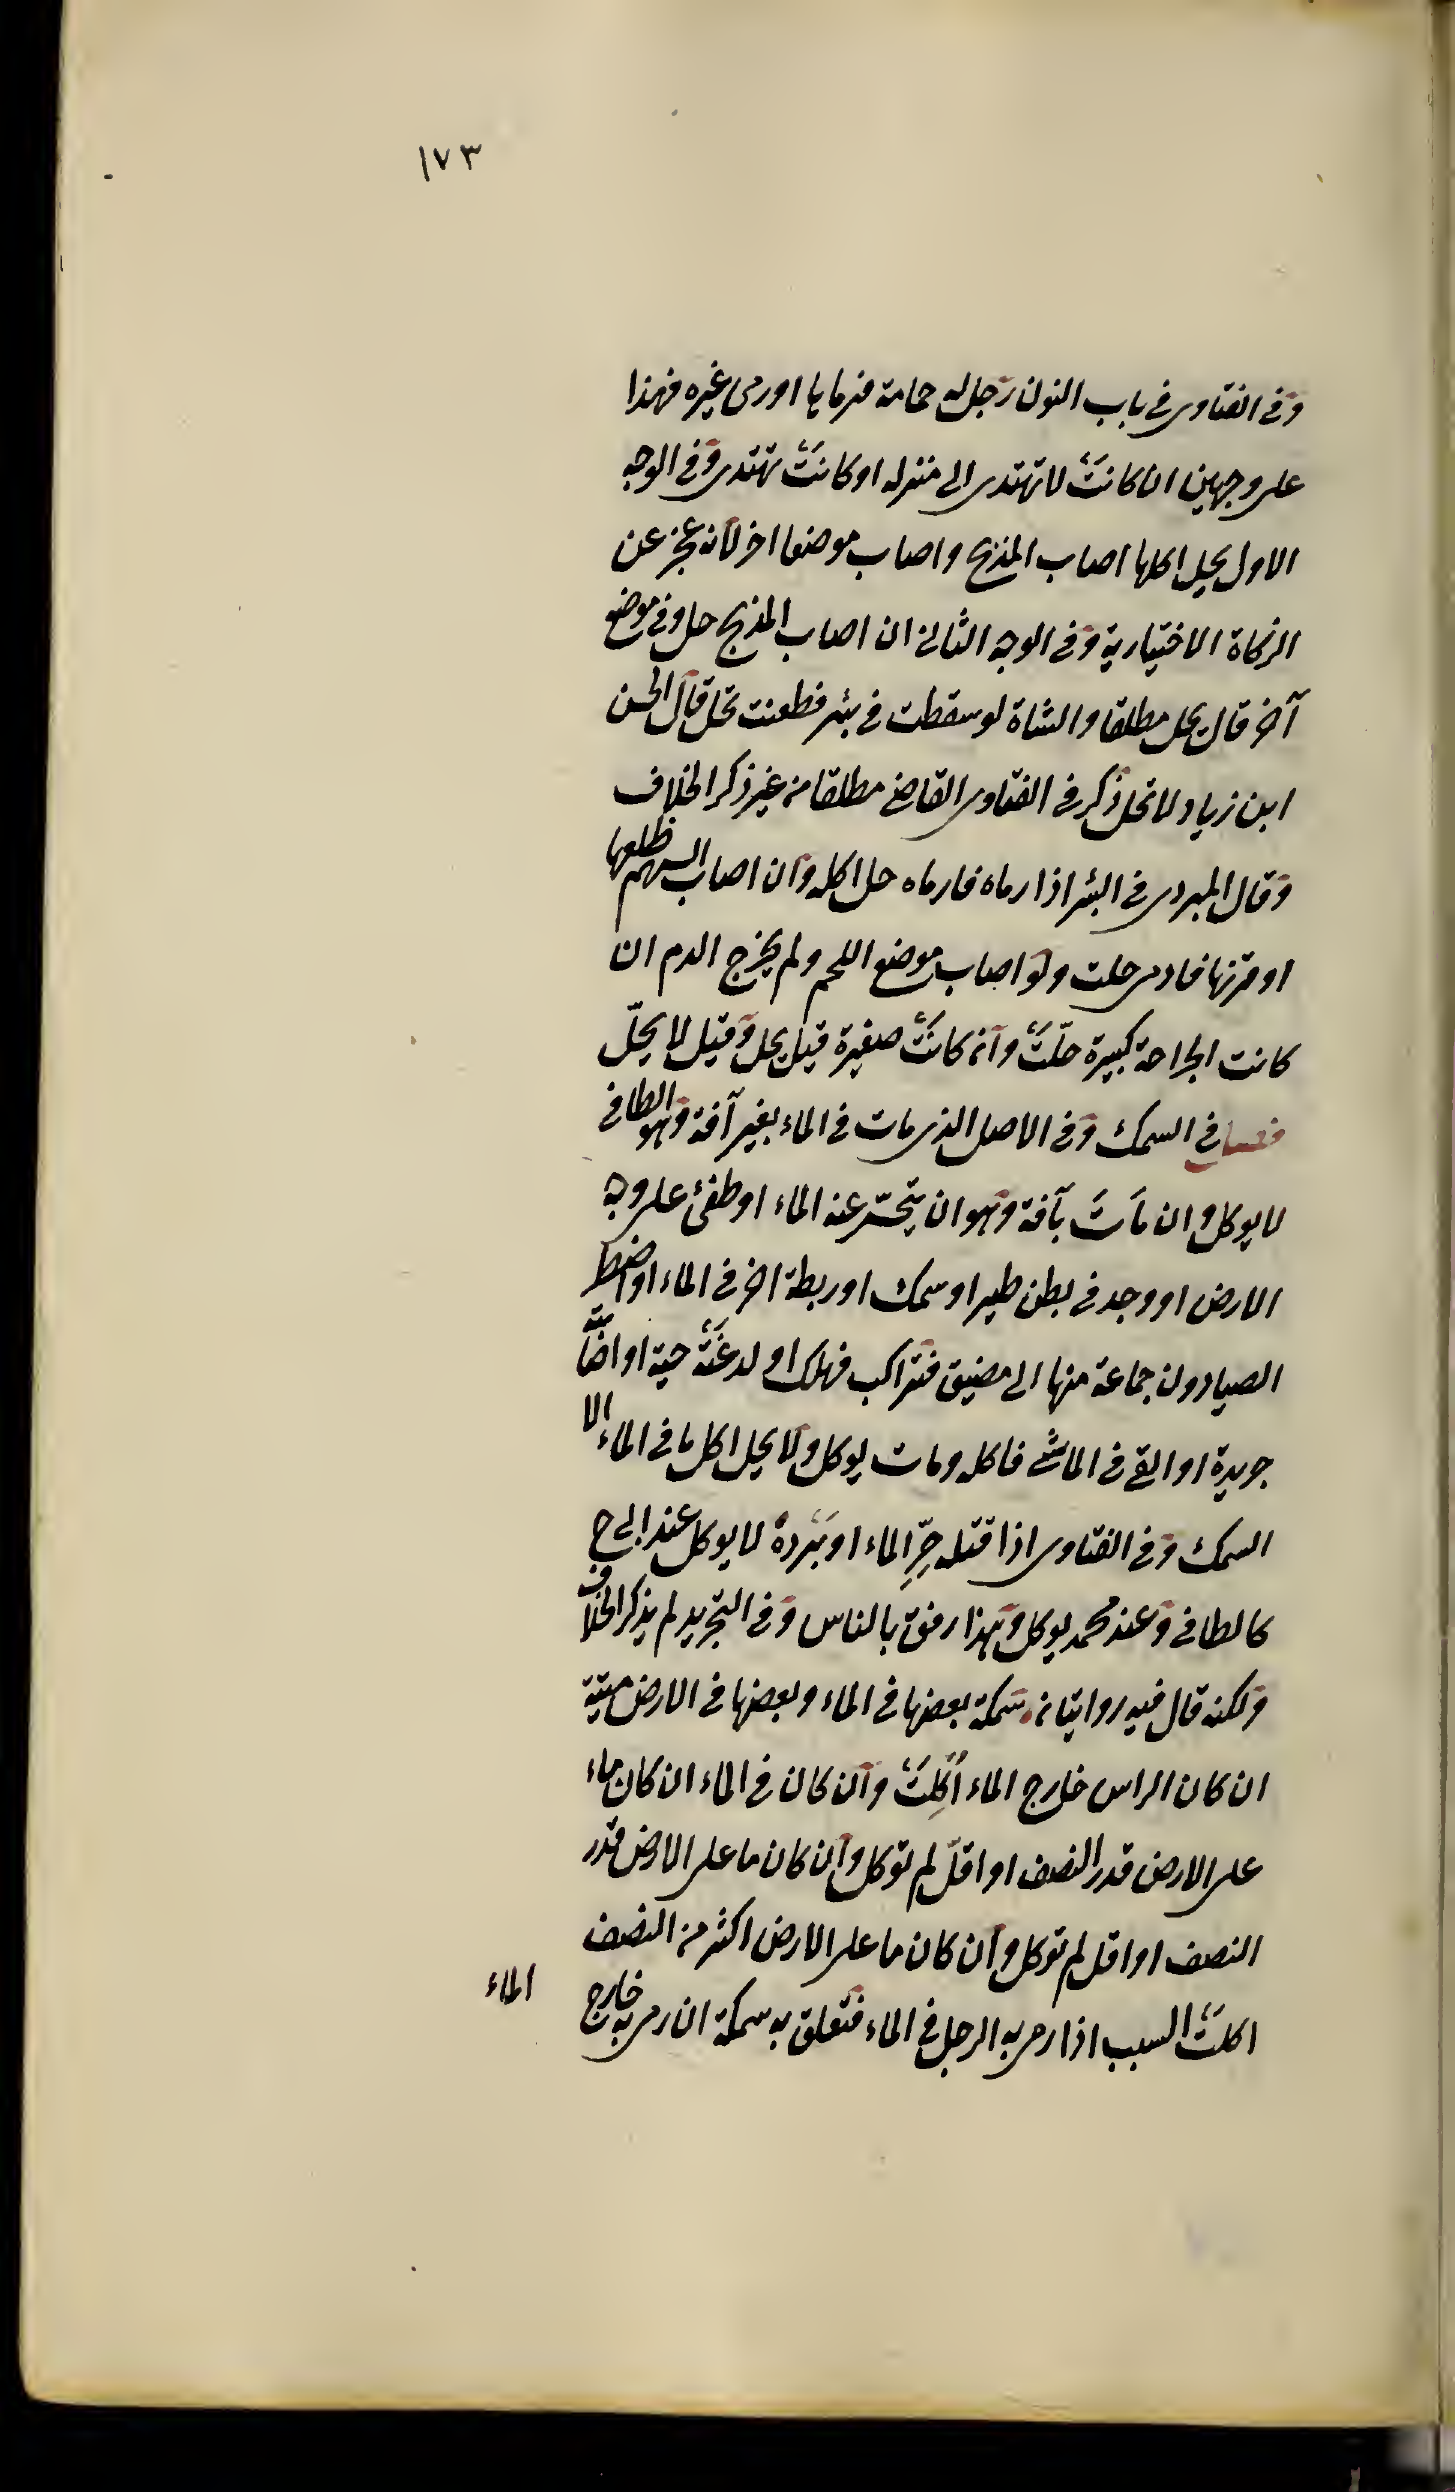 ١٧٣
وفى الفتاوى فى باب النون رجل له حمامة فرماها اورمى غيره فهذا
على وجهين ان كانت لا تهتدى الى منزله اوكانت تهتدى وفى الوجه
الاول يحل اكلها اصاب المذبح واصاب موضعا اخر لانه عجز عن
الزكاة الاختيارية وفى الوجه الثانى ان اصاب المذبح حل وفى موضع
آخر قال يحل مطلقا والشاة لو سقطت فى بئر فطعنت تحل قال الحسن
ابن زياد لا تحل ذكر فى الفتاوى القاضى مطلقا من غير ذكر الخلاف
وقال فى البئر اذا رماه فارماه حل اكله وان اصاب السهم ظلعها
او قرنها فادمى حلت ولو اصاب موضع اللحم ولم يخرج الدم ان
كانت الجراحة كبيرة حلّت وان كانت صغيرة قيل يحل وقيل لا يحلّ
فصل فى السمك وفى الاصل الذى مات فى الماء بغير آفة وهو الطافى
لا يوكل وان مات بآفة وهو ان يتحسّر عنه الماء اوطفئ على وجه
الارض او وجد فى بطن طير او سمك اوربطة اخر فى الماء او اضطر
الصيادون جماعة منها الى مضيق فتراكب فهلك او لدغته حية او اصابته
جريدة او القى فى الماء شئ فاكله ومات يوكل ولا يحل اكل ما فى الماء الا
السمك وفى الفتاوى اذا قتله حرّ الماء او برده لا يوكل عند ابى ح
كالطافى وعند محمد يوكل وهذا رفق بالناس وفى التجريد لم يذكر الخلاف
ولكنه قال فيه روايتان سمكة بعضها فى الماء وبعضها فى الارض ميتة
ان كان الراس خارج الماء اُكِلت وان كان فى الماء ان كان ماء
على الارض قدر النصف او اقلّ لم توكل وان كان ما على الارض قدر
النصف او اقل لم توكل وان كان ما على الارض اكثر من النصف
اكلت السبب اذا رمى به الرجل فى الماء فتعلق به سمكة ان رمى به خارج
الماء